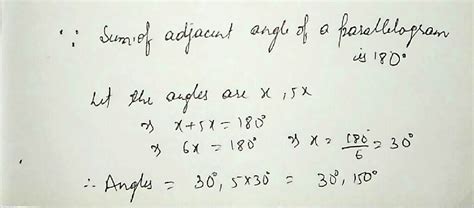 ∵ Sum of adjacent angle of a parallelogram
is 180°
Let the angles are x, 5x
⇒ x+5x = 180°
⇒ 6x = 180° ⇒ x = 180°/6 = 30°
∴ Angles = 30°, 5×30° = 30°, 150°